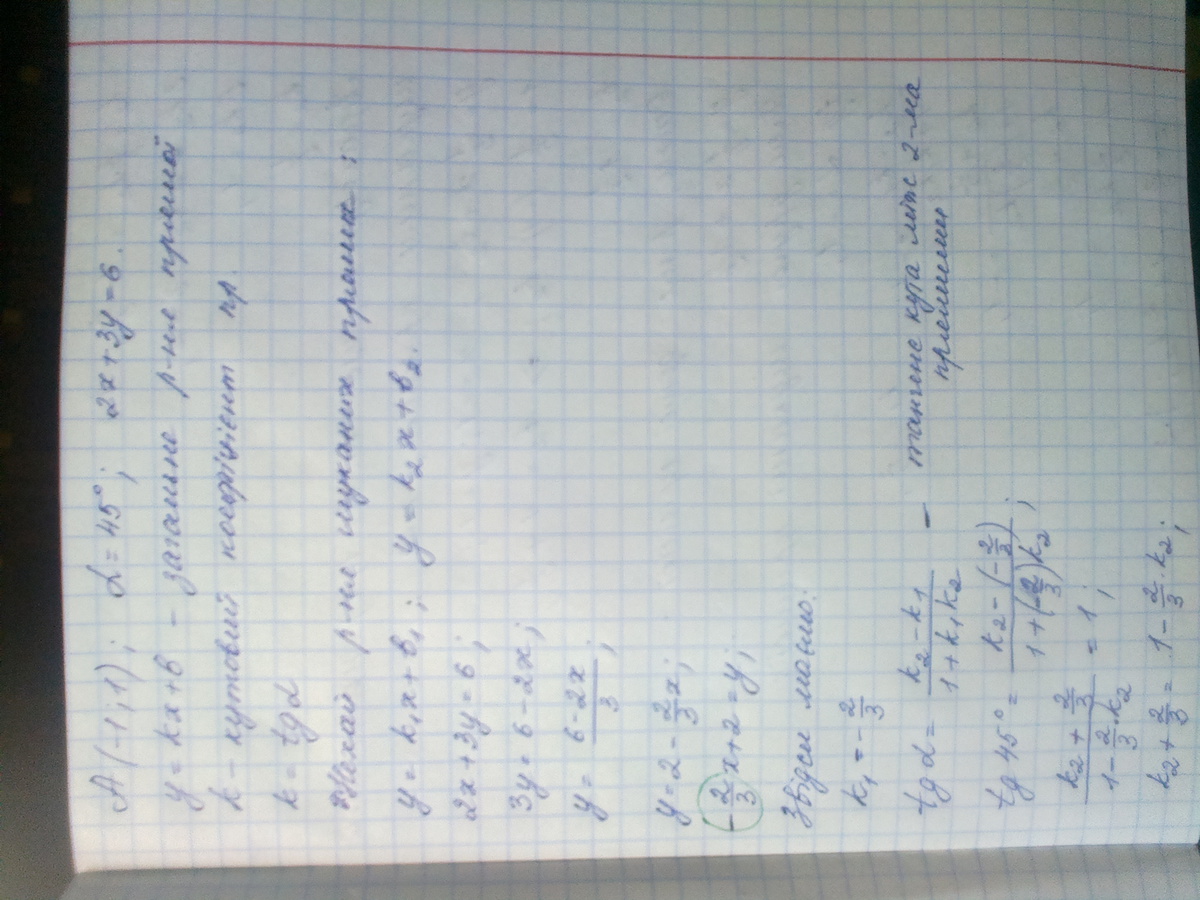 A(-1; 1); α = 45°; 2x + 3y = 6.
y = kx + b - загальне р-ня прямої
k - кутовий коефіцієнт пр.
k = tg α
Нехай р-ня шуканих прямих:
y = k₁x + b₁; y = k₂x + b₂.
2x + 3y = 6;
3y = 6 - 2x;
y = (6 - 2x)/3;
y = 2 - 2/3 x;
-2/3 x + 2 = y;
Звідси маємо:
k₁ = -2/3
tg α = (k₂ - k₁)/(1 + k₁k₂) - тангенс кута між 2-ма
прямими
tg 45° = (k₂ - (-2/3))/(1 + (-2/3)k₂);
(k₂ + 2/3)/(1 - 2/3 · k₂) = 1;
k₂ + 2/3 = 1 - 2/3 · k₂;